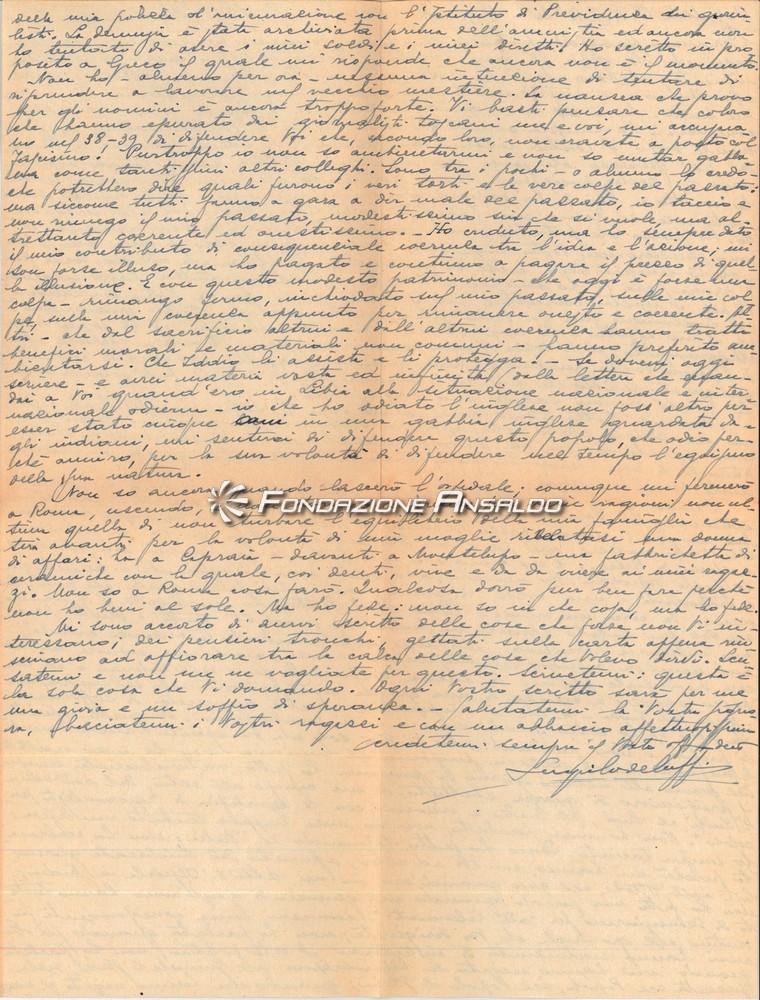 della mia polizza d'assicurazione con l'Istituto di Previdenza dei giorna-
listi. La denunzia è stata archiviata prima dell'amnistia ed ancora non
ho tentato di avere i miei soldi e i miei diretti. Ho scritto in pro
posito a Greco il quale mi risponde che ancora non è il momento.
Non ho, almeno per ora - nessuna intenzione di tentare di
riprendere a lavorare nel vecchio mestiere. La nausea che provo
per gli uomini è ancora troppo forte. Vi basti pensare che coloro
che hanno epurato dei giornalisti toscani me e voi, mi accusa
no nel 38-39 di difendere Voi che, secondo loro, non eravate a posto col
Fascismo! Purtroppo io non so ambientarmi e non so mutar gabba
na come tanti miei altri colleghi. Sono tra i pochi - o almeno lo credo-
che potrebbero dire quali furono i veri torti e le vere colpe del passato:
ma siccome tutti fanno a gara a dir male del passato, io taccio e
non rinnego il mio passato, modestissimo sin che si vuole, ma al-
trettanto coerente ed onestissimo. - Ho creduto, ma ho sempre dato
il mio contributo di consequenziale coerenza tra l'idea e l'azione; mi
son forse illuso, ma ho pagato e continuo a pagare il prezzo di quel-
la illusione. E con questo modesto patrimonio - che oggi è forse una
colpa - rimango fermo, inchiodato sul mio passato, sulle mie col
pe, sulla mia coerenza appunto per rimanere onesto e coerente. Al
tri - che dal sacrificio altrui e dall'altrui coerenza hanno tratto
benefici morali e materiali non comuni - hanno preferito am
bientarsi. Che Iddio li assista e li protegga. - Se dovessi oggi
scrivere - e avrei materia vasta ed infinita (dalla lettera che man-
dai a Voi quand'ero in Libia alla situazione nazionale e inter-
nazionale odierna - io che ho odiato l'inglese non foss'altro per
esser stato cinque anni in una gabbia inglese guardata da-
gli indiani, mi sentirei di difendere questo popolo, che odio per-
ché ammiro, per la sua volontà di difendere nel tempo l'equipro
della sua natura.
Non so ancora quando lascerò l'ospedale; comunque mi fermerò
a Roma, uscendo, ragioni non ul-
tima quella di non turbare l'equilibrio della mia famiglia che
tira avanti per la volontà di mia moglie rivelatasi una donna
di affari: ha a Capraia - davanti a Montelupo - una fabbrichetta di
ceramiche con la quale, coi denti, vive e dà da vivere ai miei ragaz-
zi. Non so a Roma cosa farò. Qualcosa dovrò pur ben fare perché
non ho beni al sole. Ma ho fede; non so in che cosa, ma ho fede.
Mi sono accorto di avervi scritto delle cose che forse non Vi in-
teressano; dei pensieri tronchi, gettati sulla carta appena riu-
scivano ad affiorare tra la calca delle cose che volevo dirvi. Scu-
satemi e non me ne vogliate per questo. Scrivetemi: questa è
la sola cosa che Vi domando. Ogni Vostro scritto sarà per me
una gioia e un soffio di speranza. - Salutatemi la Vostra signo
ra, baciatemi i Vostri ragazzi e con un abbraccio affettuosissimo
credetemi sempre il Vostro
FONDAZIONE ANSALDO